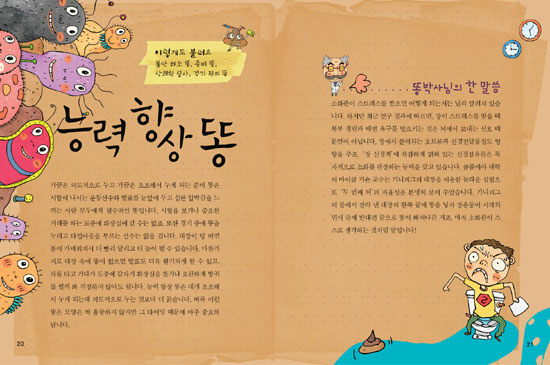 이렇게도 불러요
불안 해소 똥, 준비 똥,
경기 전의 똥
능력 향상 똥
가끔은 의도적으로 누고 가끔은 초조해서 누게 되는 준비 똥은
시합에 나서는 운동선수와 발표를 눈앞에 두고 심한 압박감을 느
끼는 사람 모두에게 필수적인 똥입니다. 시험을 보거나 중요한
거래를 하는 도중에 화장실에 갈 수는 없죠. 또한 경기 중에 똥을
누려고 타임아웃을 부르는 선수는 없을 겁니다. 대장이 텅 비면
몸이 가벼워져서 더 빨리 달리고 더 높이 뛸 수 있습니다. 마찬가
지로 대장 속에 똥이 없으면 발표도 더욱 활기차게 할 수 있고,
차를 타고 가다가 도중에 갑자기 화장실을 찾거나 요란하게 방귀
를 뀔까 봐 걱정하지 않아도 됩니다. 능력 향상 똥은 대개 초조해
서 누게 되는데 의도적으로 누는 것보다 더 묽습니다. 비록 이런
똥은 모양은 썩 훌륭하지 않지만 그 타이밍 때문에 아주 중요하
답니다.
20
똥박사님의 한 말씀
소화관이 스트레스를 받으면 어떻게 되는지는 널리 알려져 있습
니다. 하지만 최근 연구 결과에 따르면, 장이 스트레스를 받을 때
복부 경련과 배변 욕구를 일으키는 것은 뇌에서 보내는 신호 때
문만이 아닙니다. 장에서 분비되는 호르몬과 신경전달물질도 영
향을 주죠. '장 신경계'에 복잡하게 얽혀 있는 신경섬유들은 독
자적으로 소화를 관장하는 능력을 갖고 있습니다. 컬럼비아 대학
의 마이클 거숀 교수는 기니피그의 대장을 이용한 능력을 실험으
로 '두 번째 뇌'의 자율성을 분명히 보여 주었습니다. 기니피그
의 몸에서 잘라 낸 대장의 한쪽 끝에 똥을 넣자 장운동이 시작되
면서 금세 반대편 끝으로 똥이 빠져나간 거죠. 마치 소화관이 스
스로 생각하는 것처럼 말입니다!
21